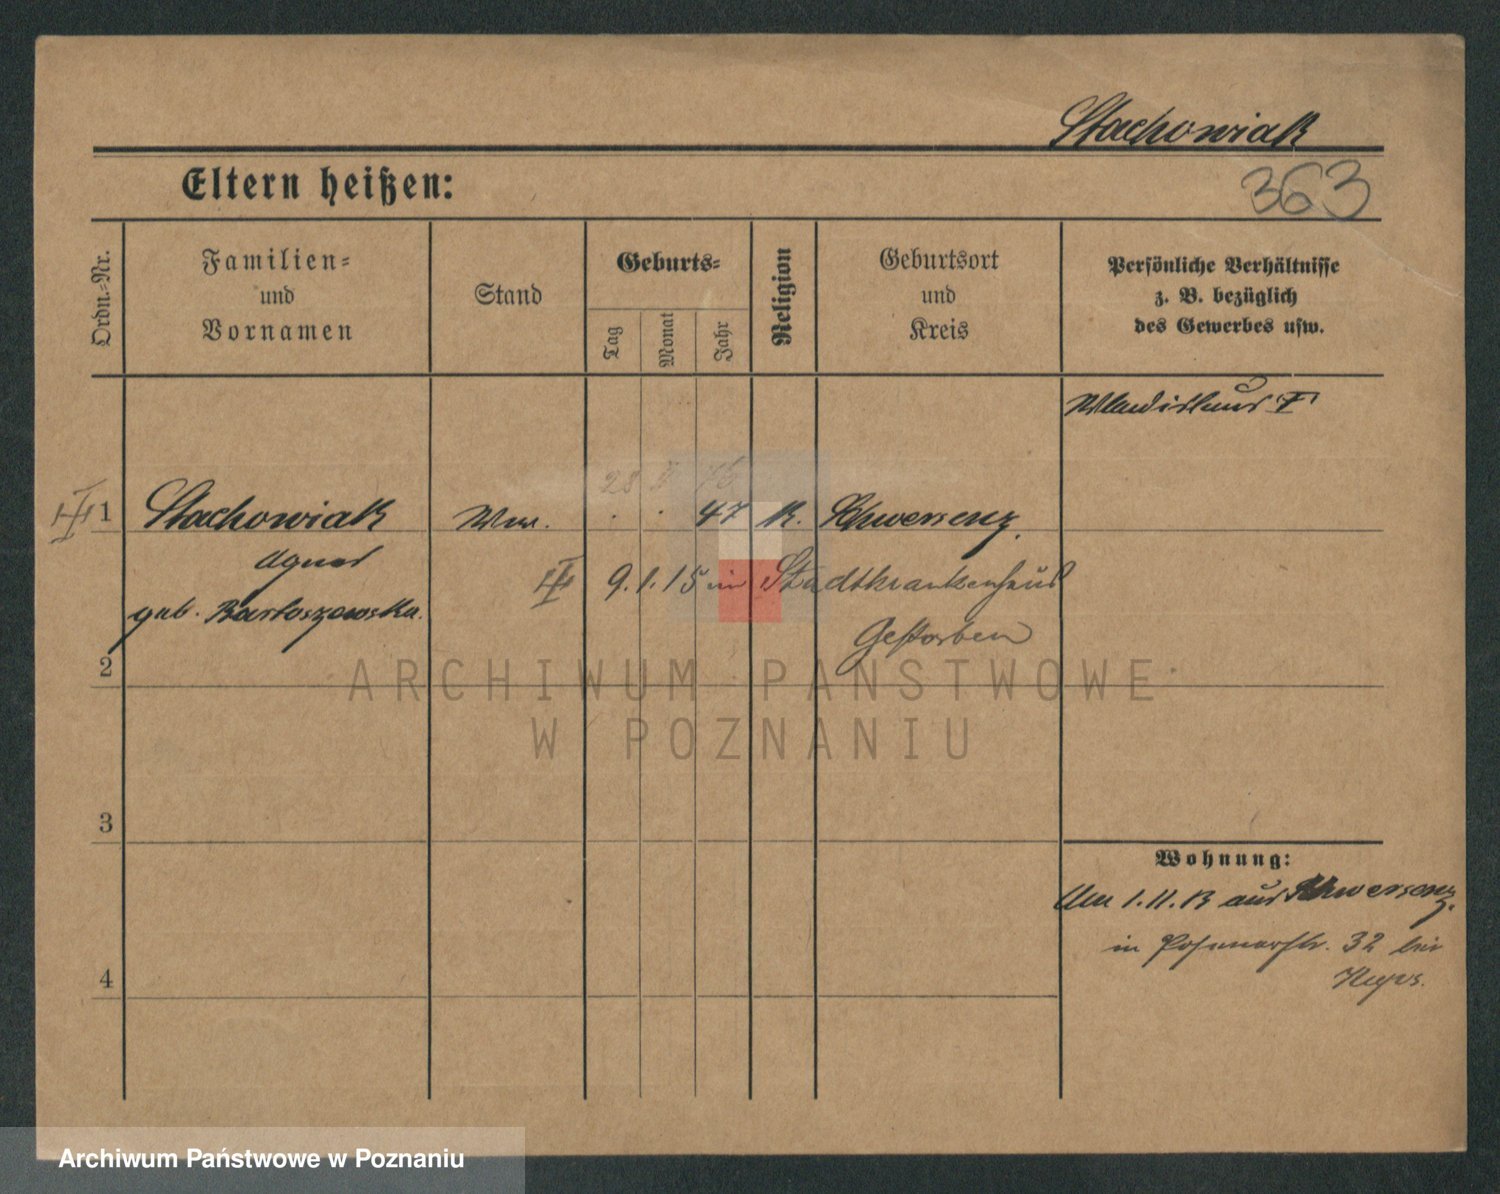 Stachowiak
Eltern heißen:
363
Ordn.-Nr.
Familien-
und
Vornamen
Stand
Geburts-
Tag
Monat
Jahr
Religion
Geburtsort
und
Kreis
Persönliche Verhältnisse
z. B. bezüglich
des Gewerbes usw.
Wladislaus †
1 Stachowiak Ww. . . 47 K. Schwersenz.
Agnes
9.1.15 im Stadtkrankenhaus
geb. Bartoszewska.
Gestorben
2
ARCHIWUM PAŃSTWOWE
W POZNANIU
3
Wohnung:
Am 1.11.13 aus Schwersenz.
in Posenerstr. 32 bei
4
Archiwum Państwowe w Poznaniu